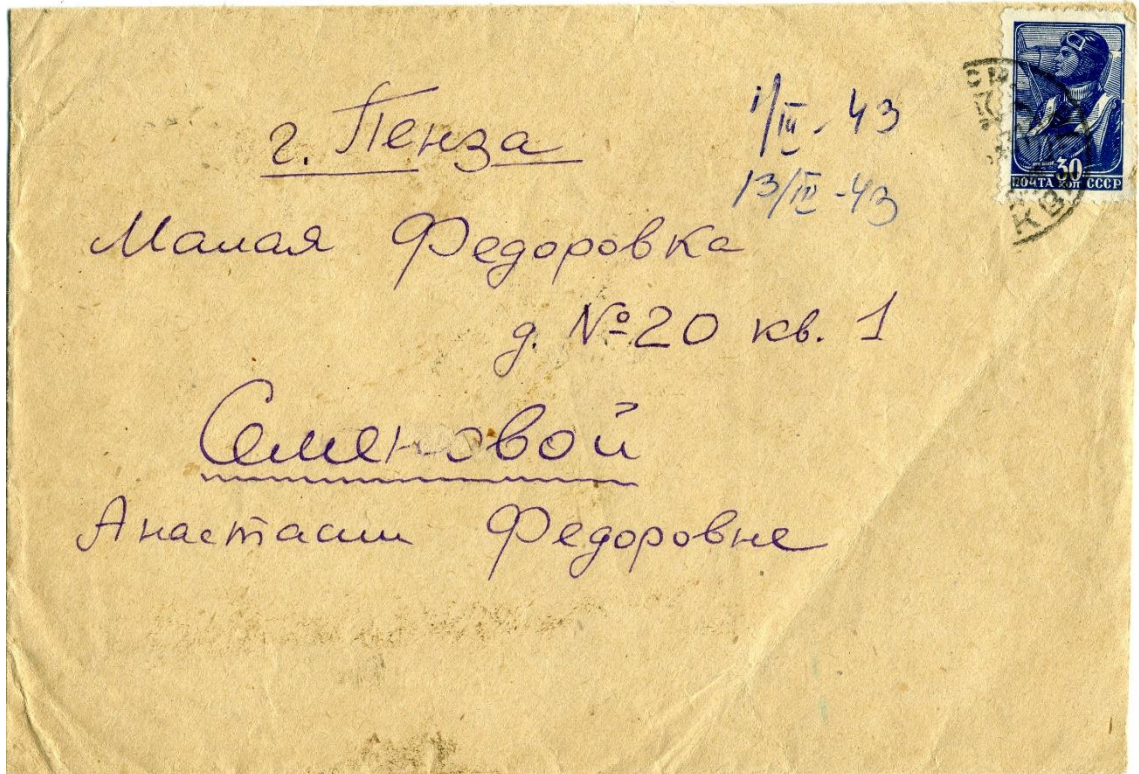 г. Пенза
1/III - 43
13/III - 43
Малая Федоровка
д. № 20 кв. 1
Семеновой
Анастасии Федоровне
30
ПОЧТА КОП СССР